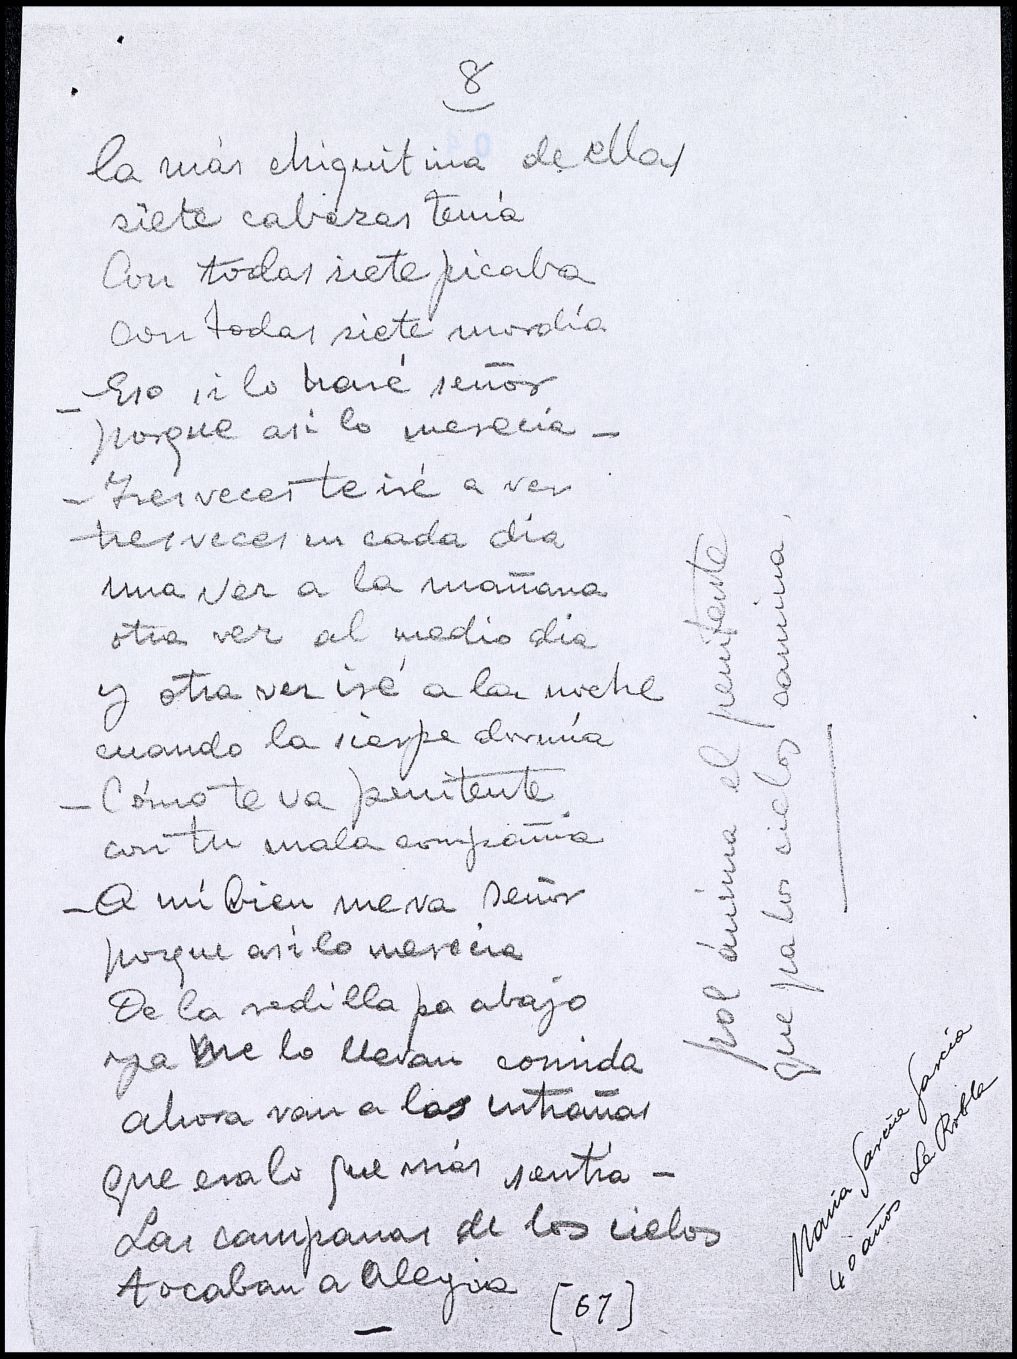 8
la más chiquitina de ellas
siete cabezas tenía
Con todas siete picaba
con todas siete mordía
- Eso si lo haré señor
porque asi lo merecía -
- Tres veces te iré a ver
tres veces en cada día
una vez a la mañana
otra vez al medio dia
y otra vez iré a la noche
cuando la sierpe dormía
- Cómo te va penitente
con tu mala compañía
- A mí bien me va señor
porque asi lo merecia
De la rodilla pa abajo
ya me lo llevan comida
ahora van a las entrañas
que era lo que más sentía -
Las campanas de los cielos
tocaban a Alegria
[67]
pol ánima el penitente
que pa los cielos camina.
María García García
40 años La Robla